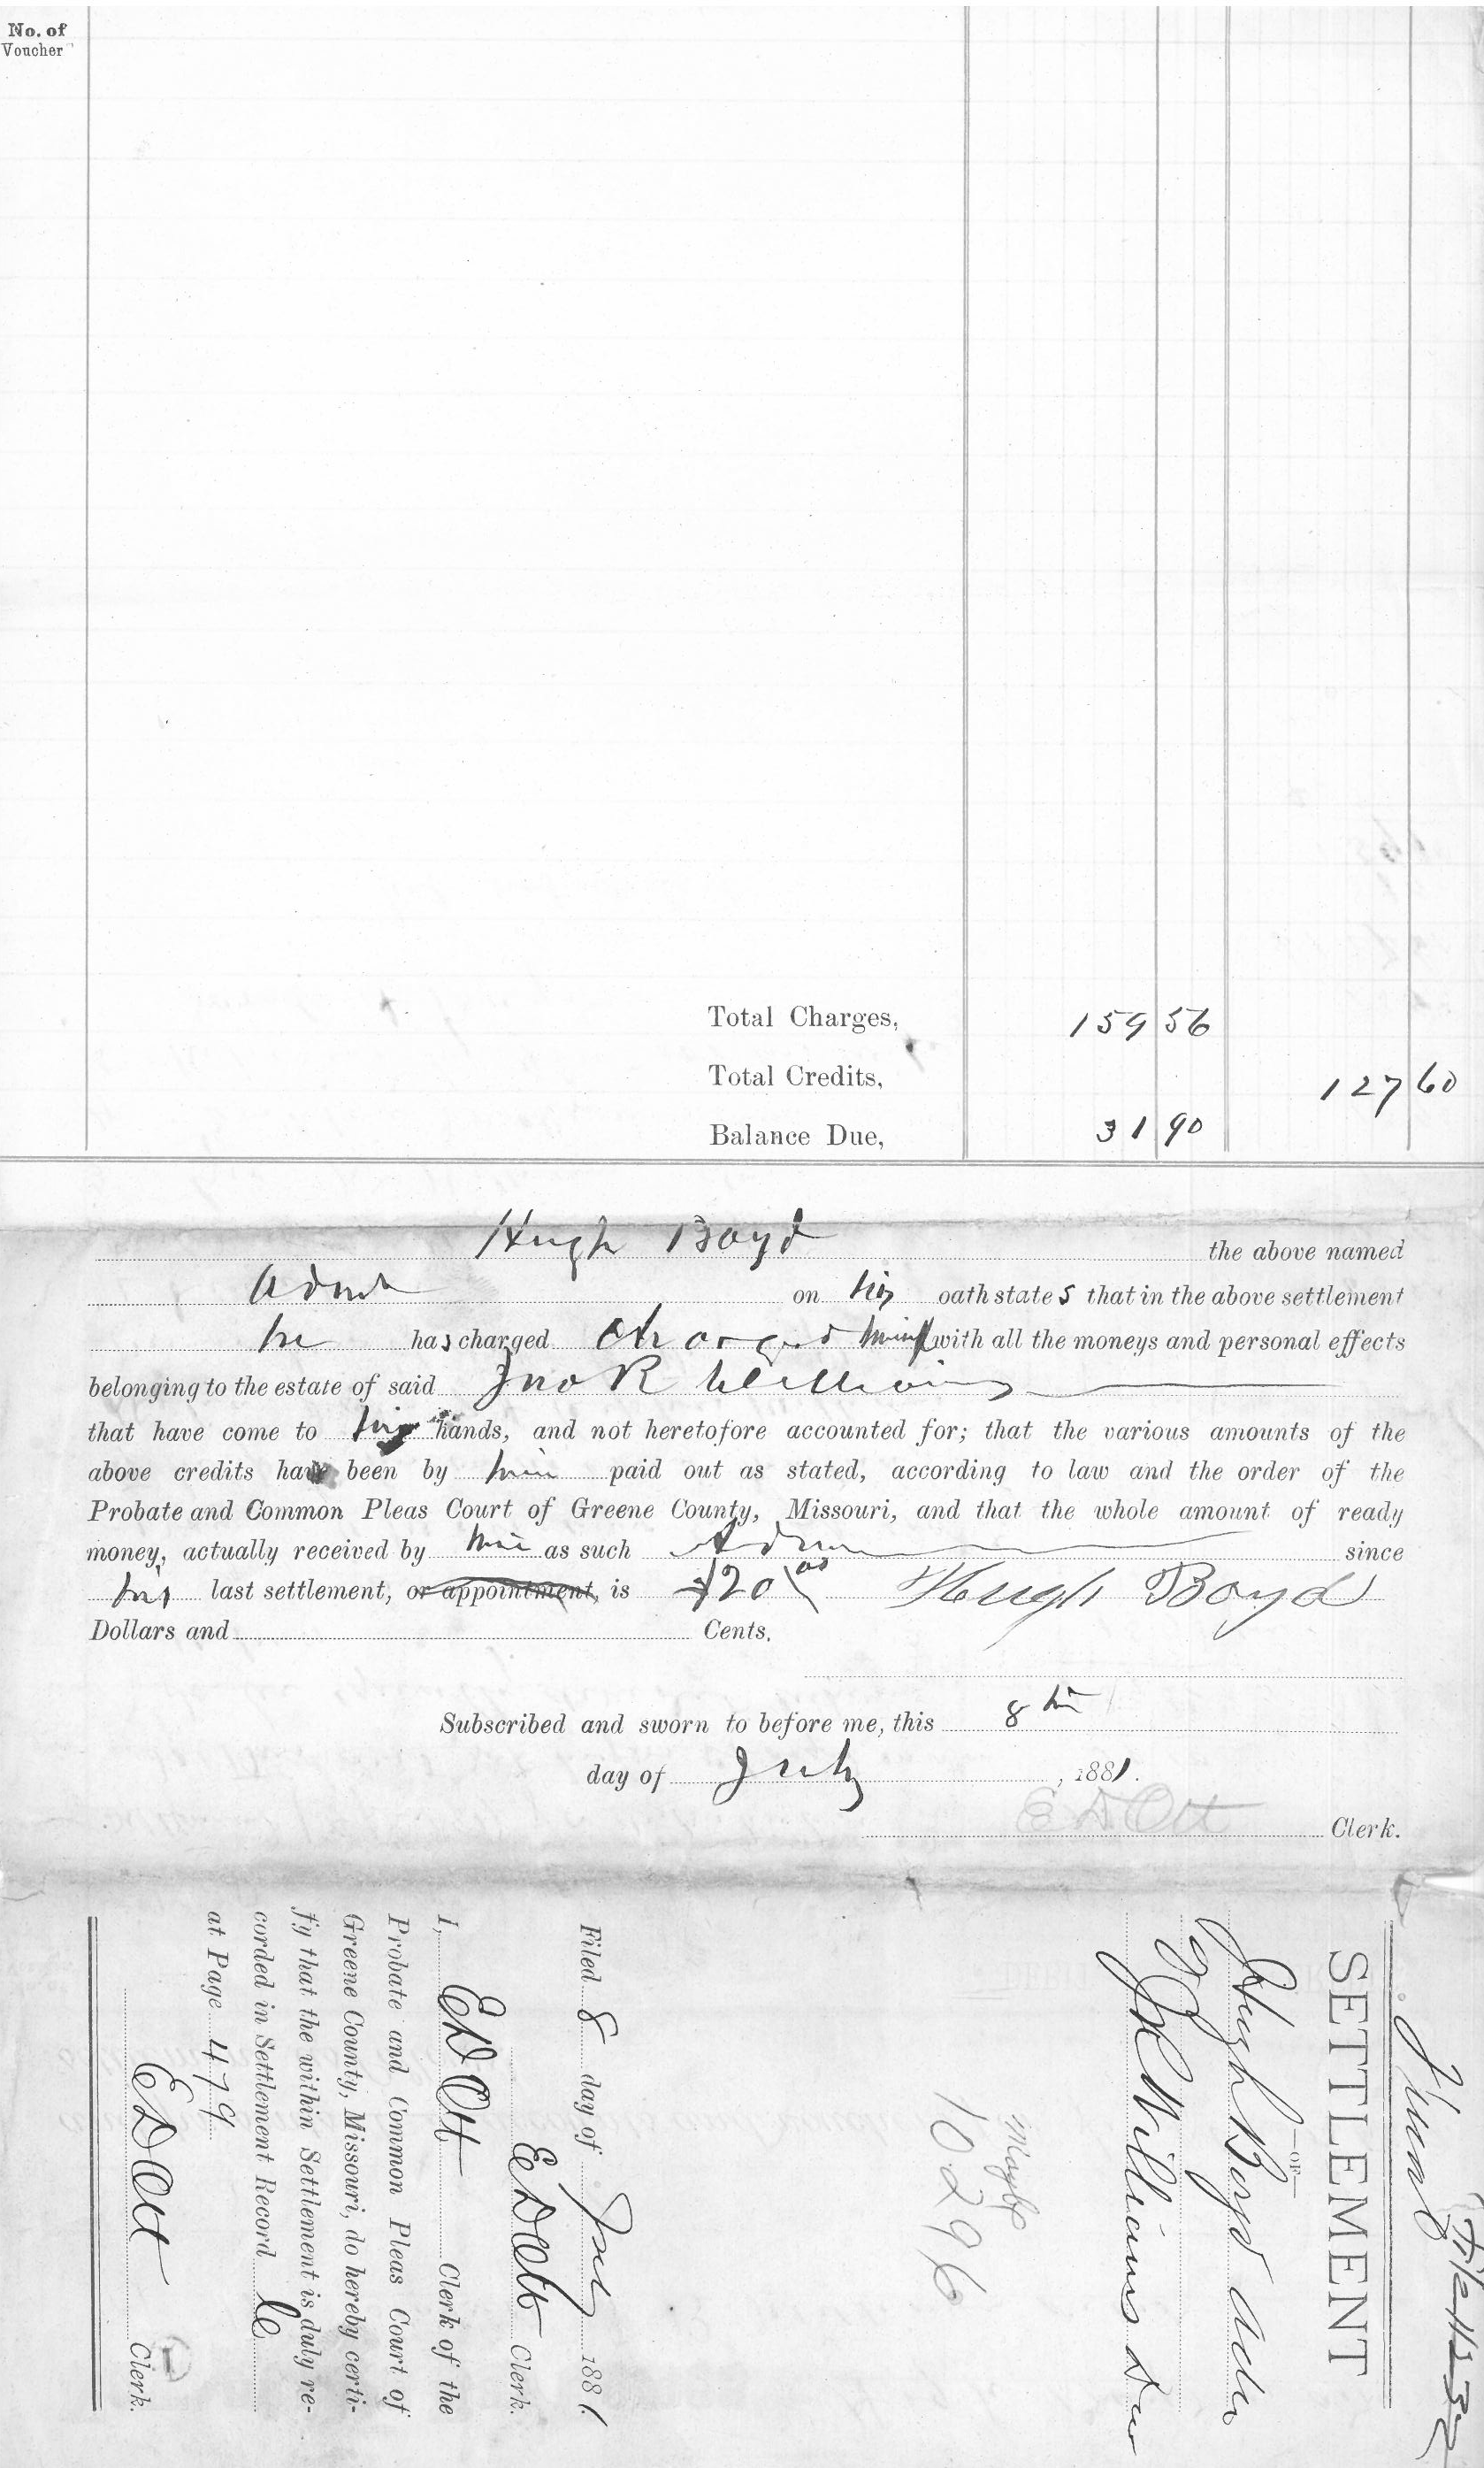 No. of
Voucher
Total Charges, 159 56
Total Credits, 127 60
Balance Due, 31 90
Hugh Boyd the above named
Admr on his oath states that in the above settlement
he has charged charged himself with all the moneys and personal effects
belonging to the estate of said Jno R Williams
that have come to his hands, and not heretofore accounted for; that the various amounts of the
above credits have been by him paid out as stated, according to law and the order of the
Probate and Common Pleas Court of Greene County, Missouri, and that the whole amount of ready
money, actually received by him as such Admr since
his last settlement, or appointment, is $20 00 Hugh Boyd
Dollars and Cents.
Subscribed and sworn to before me, this 8th
day of July, 1881.
E D Ott Clerk.
SETTLEMENT
—OF—
Hugh Boyd Adm
of
J R Williams Dec
10296
Filed 8 day of July 1881.
E D Ott Clerk.
I, E D Ott Clerk of the
Probate and Common Pleas Court of
Greene County, Missouri, do hereby certi-
fy that the within Settlement is duly re-
corded in Settlement Record C
at Page 479
E D Ott Clerk.